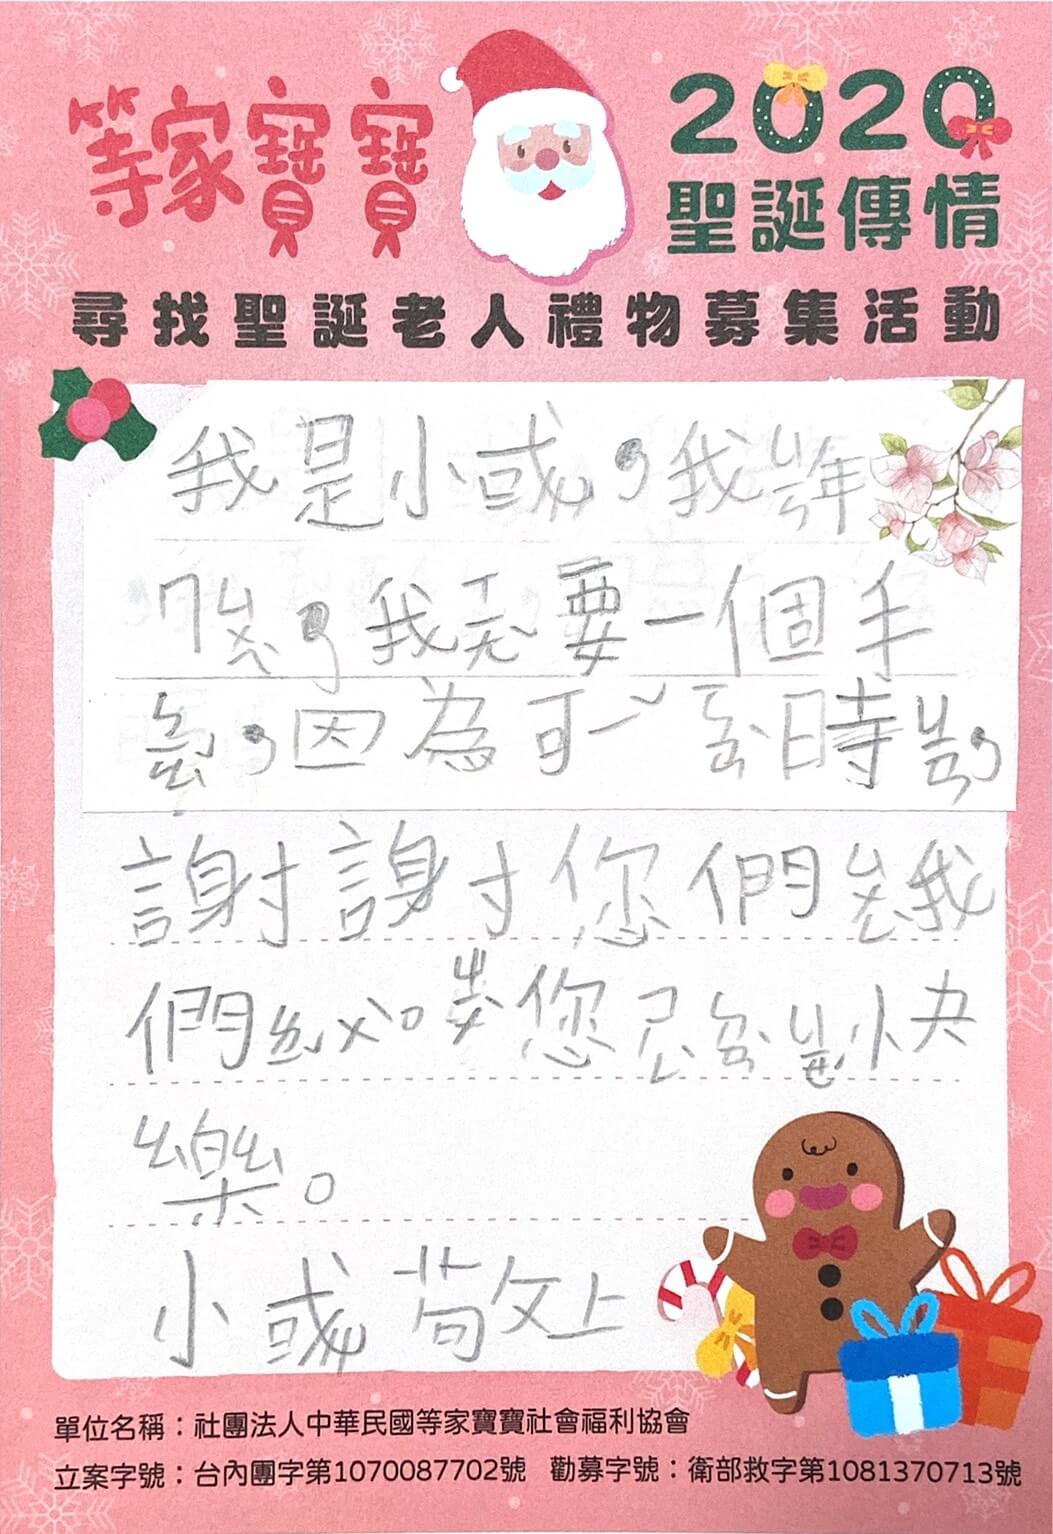 等家寶寶
2020
聖誕傳情
尋找聖誕老人禮物募集活動
我是小彧，我
，我 要一個手
，因為可 時
謝謝您們 我
們 。 您 快
樂。
小彧敬上
單位名稱：社團法人中華民國等家寶寶社會福利協會
立案字號：台內團字第1070087702號 勸募字號：衛部救字第1081370713號